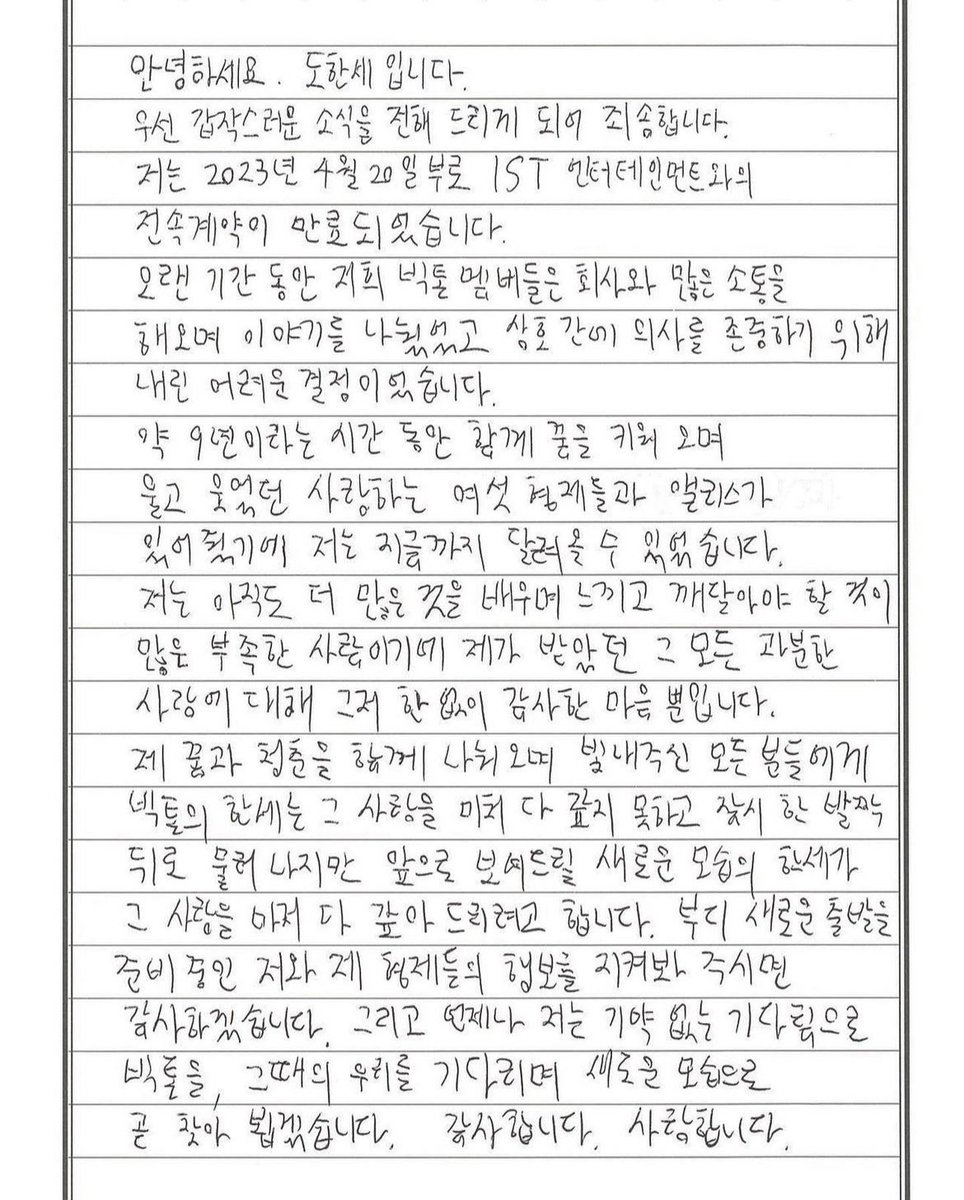 안녕하세요. 도한세입니다.
우선 갑작스러운 소식을 전해 드리게 되어 죄송합니다.
저는 2023년 4월 20일부로 IST 엔터테인먼트와의
전속계약이 만료되었습니다.
오랜 기간 동안 저희 빅톤 멤버들은 회사와 많은 소통을
해오며 이야기를 나눴었고 상호 간에 의사를 존중하기 위해
내린 어려운 결정이었습니다.
약 9년이라는 시간 동안 함께 꿈을 키워 오며
울고 웃었던 사랑하는 여섯 형제들과 앨리스가
있어줬기에 저는 지금까지 달려올 수 있었습니다.
저는 아직도 더 많은 것을 배우며 느끼고 깨달아야 할 것이
많은 부족한 사람이기에 제가 받았던 그 모든 과분한
사랑에 대해 그저 한 없이 감사한 마음 뿐입니다.
제 꿈과 청춘을 함께 나눠오며 빛내주신 모든 분들에게
빅톤의 한세는 그 사랑을 미처 다 갚지 못하고 잠시 한 발짝
뒤로 물러나지만 앞으로 보여드릴 새로운 모습의 한세가
그 사랑을 마저 다 갚아 드리려고 합니다. 부디 새로운 출발을
준비 중인 저와 제 형제들의 행보를 지켜봐 주시면
감사하겠습니다. 그리고 언제나 저는 기약 없는 기다림으로
빅톤을, 그때의 우리를 기다리며 새로운 모습으로
곧 찾아 뵙겠습니다. 감사합니다. 사랑합니다.